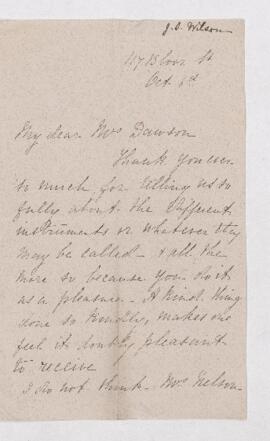 J. S. Wilson
117 Bloor St
Oct 3rd
My dear Mrs Dawson
Thank you ever
so much for telling us so
fully about the different
instruments or whatever they
may be called - & all the
more so because you do it
as a pleasure - A kind thing
done so kindly, makes one
feel it doubly pleasant
to receive
I do not think - Mrs Nelson